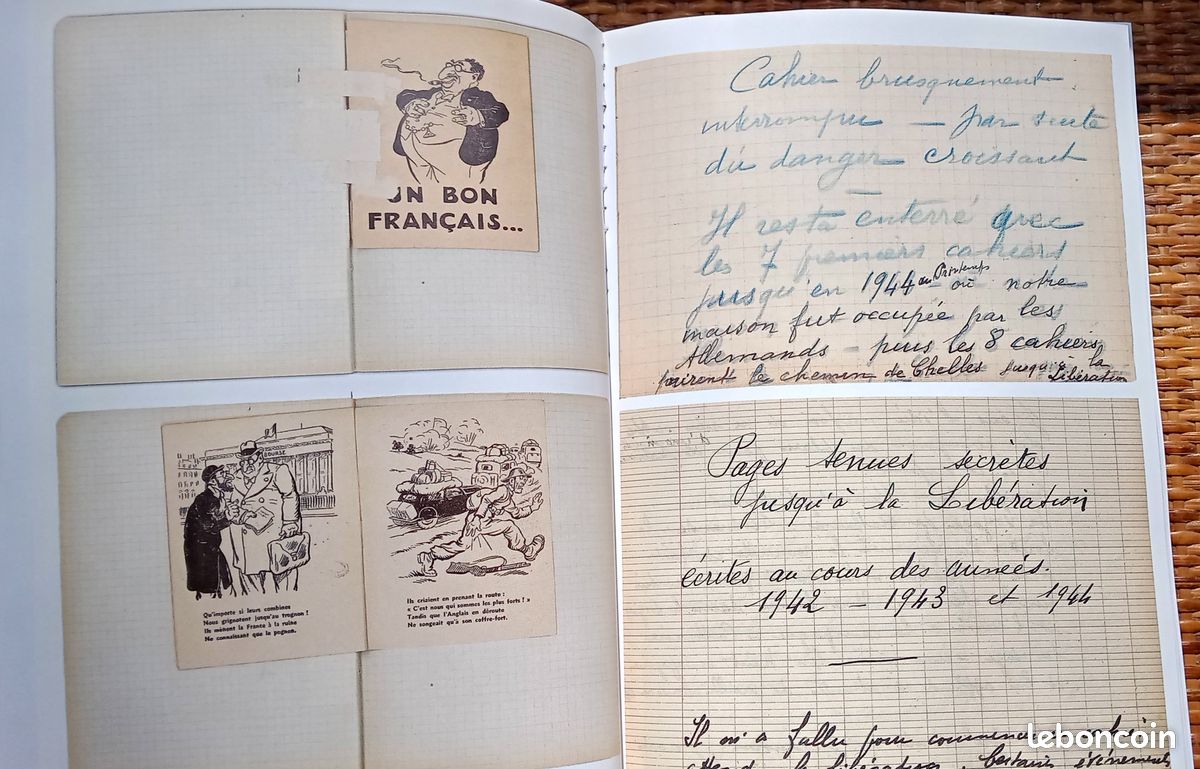 UN BON
FRANÇAIS...
BOURSE
Qu'importe si leurs combines
Nous grignotent jusqu'au trognon !
Ils mènent la France à la ruine
Ne connaissant que le pognon.
Ils criaient en prenant la route :
« C'est nous qui sommes les plus forts ! »
Tandis que l'Anglais en déroute
Ne songeait qu'a son coffre-fort.
Cahier brusquement
interrompu — par suite
du danger croissant
—
Il resta enterré avec
les 7 premiers cahiers
jusqu'en 1944 au Printemps où notre
maison fut occupée par les
Allemands — puis les 8 cahiers
prirent le chemin de Chelles jusqu'à la
Libération
Pages tenues secrètes
jusqu'à la Libération
écrites au cours des années.
1942 — 1943 et 1944
Il m'a fallu pour commencer
la Libération, certains événements
leboncoin